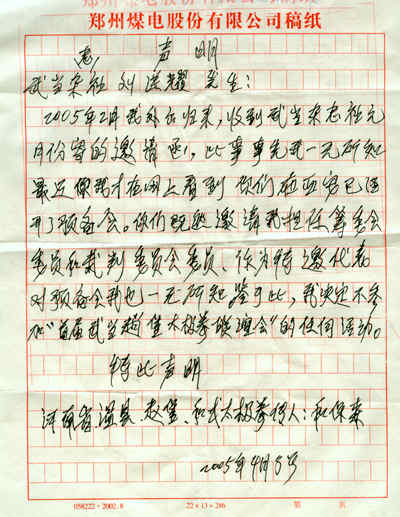 郑州煤电股份有限公司稿纸
声明
武当杂社 刘洪耀 先生:
2005年2月我外出归来,收到武当杂志社元
月份寄的邀请函,此事事先我一无所知
最近你我才在网上看到 你们在西安已召
开了预备会。你们既然邀请我担任筹委会
委员和裁判委员会委员、作为特邀代表
对预备会我也一无所知鉴于此,我决定不参
加"首届武当赵堡太极拳联谊会"的任何活动。
特此声明
河南省温县.赵堡.和式太极拳传人:和保森
2005年4月5号
058222·2002.8 22×13=286 第 页